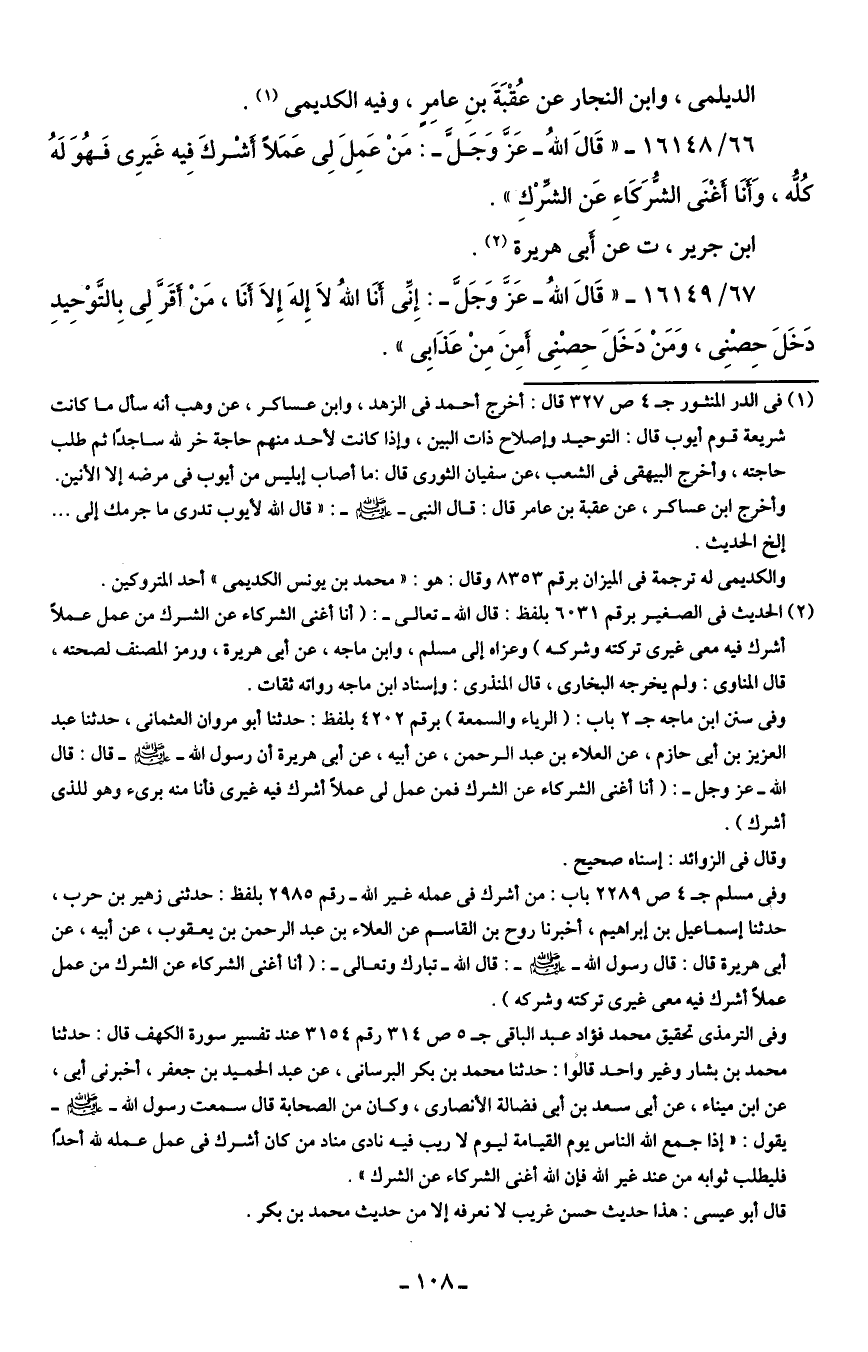 الديلمى ، وابن النجار عن عُقْبَةَ بنِ عامرٍ ، وفيه الكديمى (١) .
٦٦/ ١٦١٤٨ ـ « قَالَ اللهُ ـ عَزَّ وَجَلَّ ـ : مَنْ عَمِلَ لِى عَمَلاً أَشْركَ فِيه غَيرِى فَهُوَ لَهُ
كُلُّه ، وَأَنَا أَغْنَى الشُّركَاءِ عَن الشِّرْكِ » .
ابن جرير ، ت عن أَبى هريرة (٢) .
٦٧/ ١٦١٤٩ ـ « قَالَ اللهُ ـ عَزَّ وَجَلَّ ـ : إِنِّى أَنَا اللهُ لاَ إِلهَ إِلاَّ أَنَا ، مَنْ أَقَرَّ لِى بِالتَّوْحِيدِ
دَخَلَ حِصْنِى ، وَمَنْ دَخَلَ حِصْنِى أَمِنَ مِنْ عَذَابِى » .
(١) فى الدر المنثور جـ ٤ ص ٣٢٧ قال : أخرج أحمد فى الزهد ، وابن عساكر ، عن وهب أنه سأل ما كانت
شريعة قوم أيوب قال : التوحيد وإصلاح ذات البين ، وإذا كانت لأحد منهم حاجة خر لله ساجدًا ثم طلب
حاجته ، وأخرج البيهقى فى الشعب ،عن سفيان الثورى قال :ما أصاب إبليس من أيوب فى مرضه إلا الأنين.
وأخرج ابن عساكر ، عن عقبة بن عامر قال : قال النبى ـ ﷺ ـ : « قال الله لأيوب تدرى ما جرمك إلى ...
إلخ الحديث .
والكديمى له ترجمة فى الميزان برقم ٨٣٥٣ وقال : هو : « محمد بن يونس الكديمى » أحد المتروكين .
(٢) الحديث فى الصغير برقم ٦٠٣١ بلفظ : قال الله ـ تعالى ـ : ( أنا أغنى الشركاء عن الشرك من عمل عملاً
أشرك فيه معى غيرى تركته وشركه ) وعزاه إلى مسلم ، وابن ماجه ، عن أبى هريرة ، ورمز المصنف لصحته ،
قال المناوى : ولم يخرجه البخارى ، قال المنذرى : وإسناد ابن ماجه رواته ثقات .
وفى سنن ابن ماجه جـ ٢ باب : ( الرياء والسمعة ) برقم ٤٢٠٢ بلفظ : حدثنا أبو مروان العثمانى ، حدثنا عبد
العزيز بن أبى حازم ، عن العلاء بن عبد الرحمن ، عن أبيه ، عن أبى هريرة أن رسول الله ـ ﷺ ـ قال : قال
الله ـ عز وجل ـ : ( أنا أغنى الشركاء عن الشرك فمن عمل لى عملاً أشرك فيه غيرى فأنا منه برىء وهو للذى
أشرك ) .
وقال فى الزوائد : إسناه صحيح .
وفى مسلم جـ ٤ ص ٢٢٨٩ باب : من أشرك فى عمله غير الله ـ رقم ٢٩٨٥ بلفظ : حدثنى زهير بن حرب ،
حدثنا إسماعيل بن إبراهيم ، أخبرنا روح بن القاسم عن العلاء بن عبد الرحمن بن يعقوب ، عن أبيه ، عن
أبى هريرة قال : قال رسول الله ـ ﷺ ـ : قال الله ـ تبارك وتعالى ـ : ( أنا أغنى الشركاء عن الشرك من عمل
عملاً أشرك فيه معى غيرى تركته وشركه ) .
وفى الترمذى تحقيق محمد فؤاد عبد الباقى جـ ٥ ص ٣١٤ رقم ٣١٥٤ عند تفسير سورة الكهف قال : حدثنا
محمد بن بشار وغير واحد قالوا : حدثنا محمد بن بكر البرسانى ، عن عبد الحميد بن جعفر ، أخبرنى أبى ،
عن ابن ميناء ، عن أبى سعد بن أبى فضالة الأنصارى ، وكان من الصحابة قال سمعت رسول الله ـ ﷺ ـ
يقول : « إذا جمع الله الناس يوم القيامة ليوم لا ريب فيه نادى مناد من كان أشرك فى عمل عمله لله أحدًا
فليطلب ثوابه من عند غير الله فإن الله أغنى الشركاء عن الشرك » .
قال أبو عيسى : هذا حديث حسن غريب لا نعرفه إلا من حديث محمد بن بكر .
ـ ١٠٨ ـ